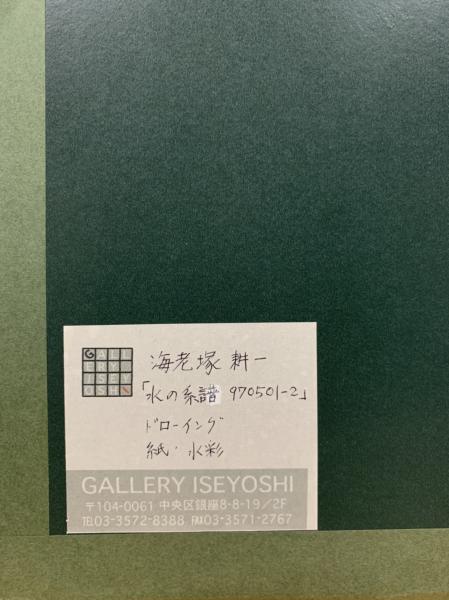 GALL
ERY
ISEY
OSHI
海老塚 耕一
「水の系譜 970501-2」
ドローイング
紙・水彩
GALLERY ISEYOSHI
〒104-0061 中央区銀座8-8-19／2F
TEL03-3572-8388 FAX03-3571-2767